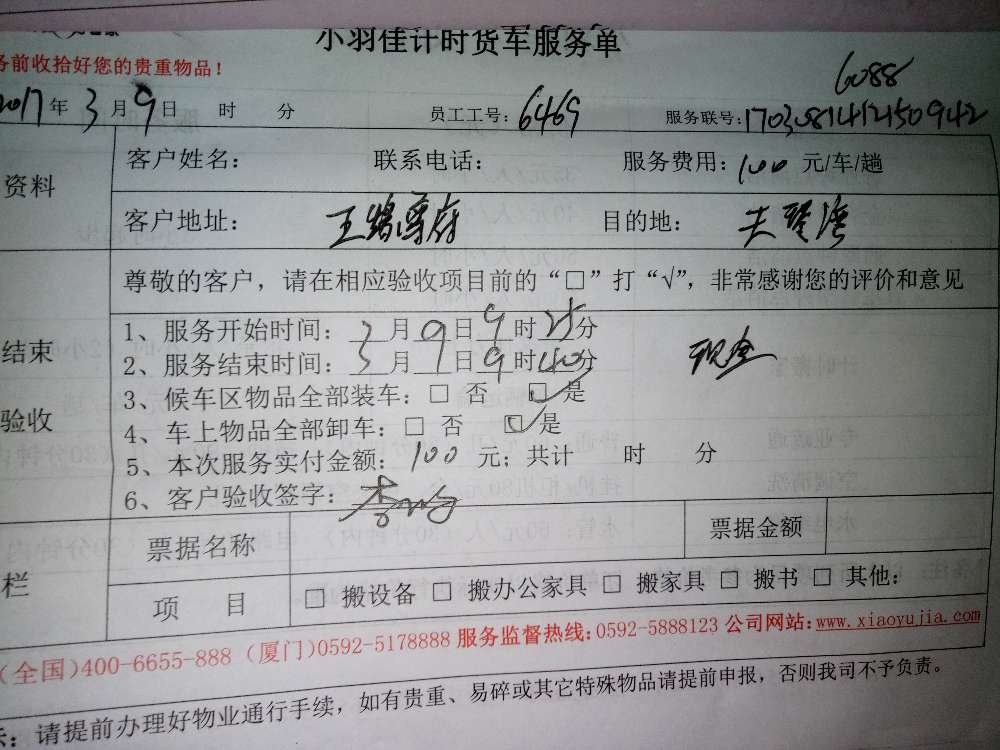 小羽佳计时货车服务单
务前收拾好您的贵重物品！
6088
2017年3月9日 时 分 员工工号：6469 服务联号：1703081412150942
资料 客户姓名： 联系电话： 服务费用：100元/车/趟
客户地址： 目的地：
尊敬的客户，请在相应验收项目前的“□”打“√”，非常感谢您的评价和意见
结束
验收
1、服务开始时间：3月9日9时25分
2、服务结束时间：3月9日9时40分
现金
3、候车区物品全部装车：□ 否 ☑ 是
4、车上物品全部卸车：□ 否 ☑ 是
5、本次服务实付金额：100元；共计 时 分
6、客户验收签字：
栏 票据名称 票据金额
项 目 □ 搬设备 □ 搬办公家具 □ 搬家具 □ 搬书 □ 其他：
（全国）400-6655-888（厦门）0592-5178888 服务监督热线：0592-5888123 公司网站：www.xiaoyujia.com
示：请提前办理好物业通行手续，如有贵重、易碎或其它特殊物品请提前申报，否则我司不予负责。